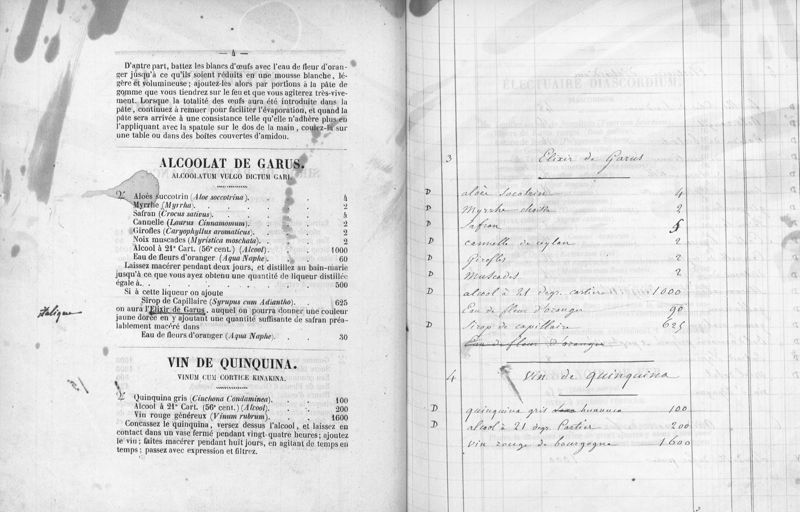 — 4 —
D'autre part, battez les blancs d'œufs avec l'eau de fleur d'oran-
ger jusqu'à ce qu'ils soient réduits en une mousse blanche, lé-
gère et volumineuse; ajoutez-les alors par portions à la pâte de
gomme que vous tiendrez sur le feu et que vous agiterez très-vive-
ment. Lorsque la totalité des œufs aura été introduite dans la
pâte, continuez à remuer pour faciliter l'évaporation, et quand la
pâte sera arrivée à une consistance telle qu'elle n'adhère plus en
l'appliquant avec la spatule sur le dos de la main, coulez-la sur
une table ou dans des boîtes couvertes d'amidon.
ALCOOLAT DE GARUS.
ALCOOLATUM VULGO DICTUM GARI.
Aloès succotrin (Aloe soccotrina). 4
Myrrhe (Myrrha). 2
Safran (Crocus sativus). 4
Cannelle (Laurus Cinnamomum). 2
Girofles (Caryophyllus aromaticus). 2
Noix muscades (Myristica moschata). 2
Alcool à 21e Cart. (56e cent.) (Alcool). 1000
Eau de fleurs d'oranger (Aqua Naphe). 60
Laissez macérer pendant deux jours, et distillez au bain-marie
jusqu'à ce que vous ayez obtenu une quantité de liqueur distillée
égale à. 500
Si à cette liqueur on ajoute
Sirop de Capillaire (Syrupus cum Adiantho). 625
on aura l'Elixir de Garus, auquel on pourra donner une couleur
jaune dorée en y ajoutant une quantité suffisante de safran préa-
lablement macéré dans
Eau de fleurs d'oranger (Aqua Naphe). 30
Italique
VIN DE QUINQUINA.
VINUM CUM CORTICE KINAKINA.
Quinquina gris (Cinchona Condaminea). 100
Alcool à 21e Cart. (56e cent.) (Alcool). 200
Vin rouge généreux (Vinum rubrum). 1600
Concassez le quinquina, versez dessus l'alcool, et laissez en
contact dans un vase fermé pendant vingt-quatre heures; ajoutez
le vin; faites macérer pendant huit jours, en agitant de temps en
temps; passez avec expression et filtrez.
15
ÉLECTUAIRE DIASCORDIUM
3 Elixir de Garus
D aloès socotrin 4
D Myrrhe choisie 2
D Safran 5
D cannelle de ceylan 2
D Girofles 2
D Muscades 2
D alcool à 21 degr. cartier 1000
Eau de fleur d'oranger 90
D Sirop de capillaire 625
Eau de fleur d'oranger
4 Vin de quinquina
D quinquina gris huanuco 100
D alcool à 21 degr. Cartier 200
vin rouge de bourgogne 1600